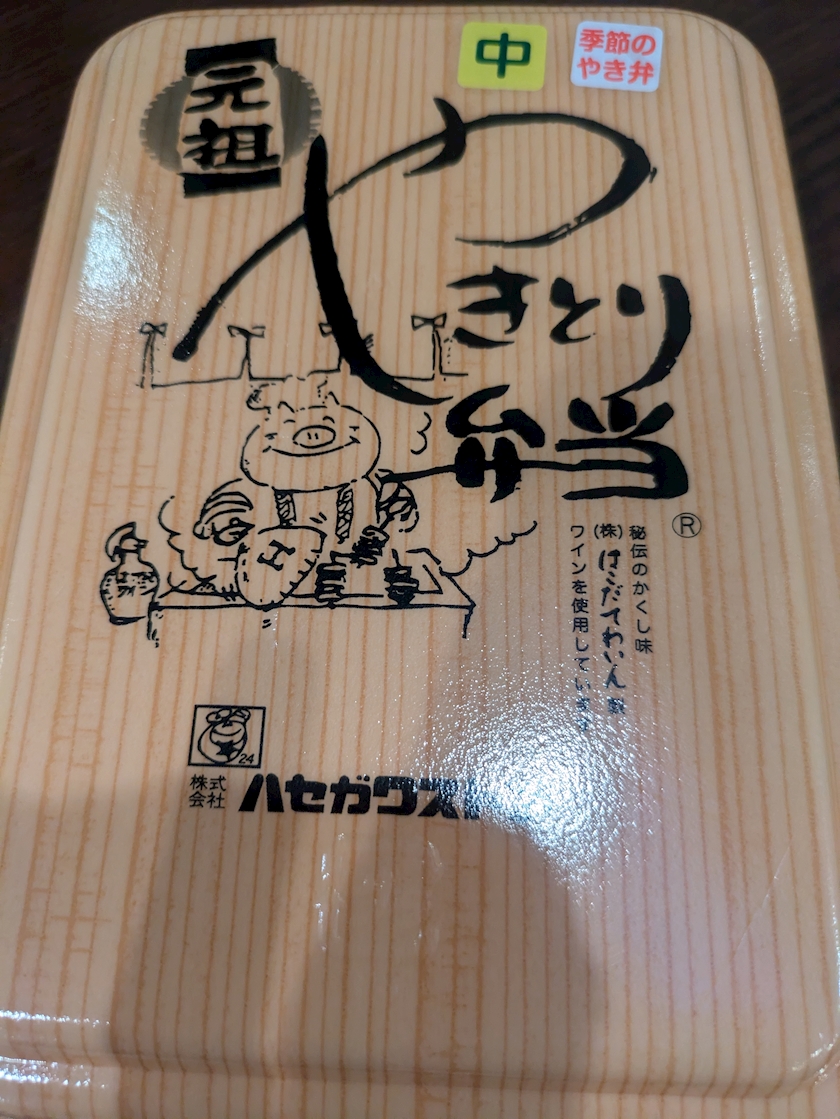 元祖
中
季節の
やき弁
やきとり
弁当
®
秘伝のかくし味
(株)はこだてわいん製
ワインを使用しています
24
株式
会社